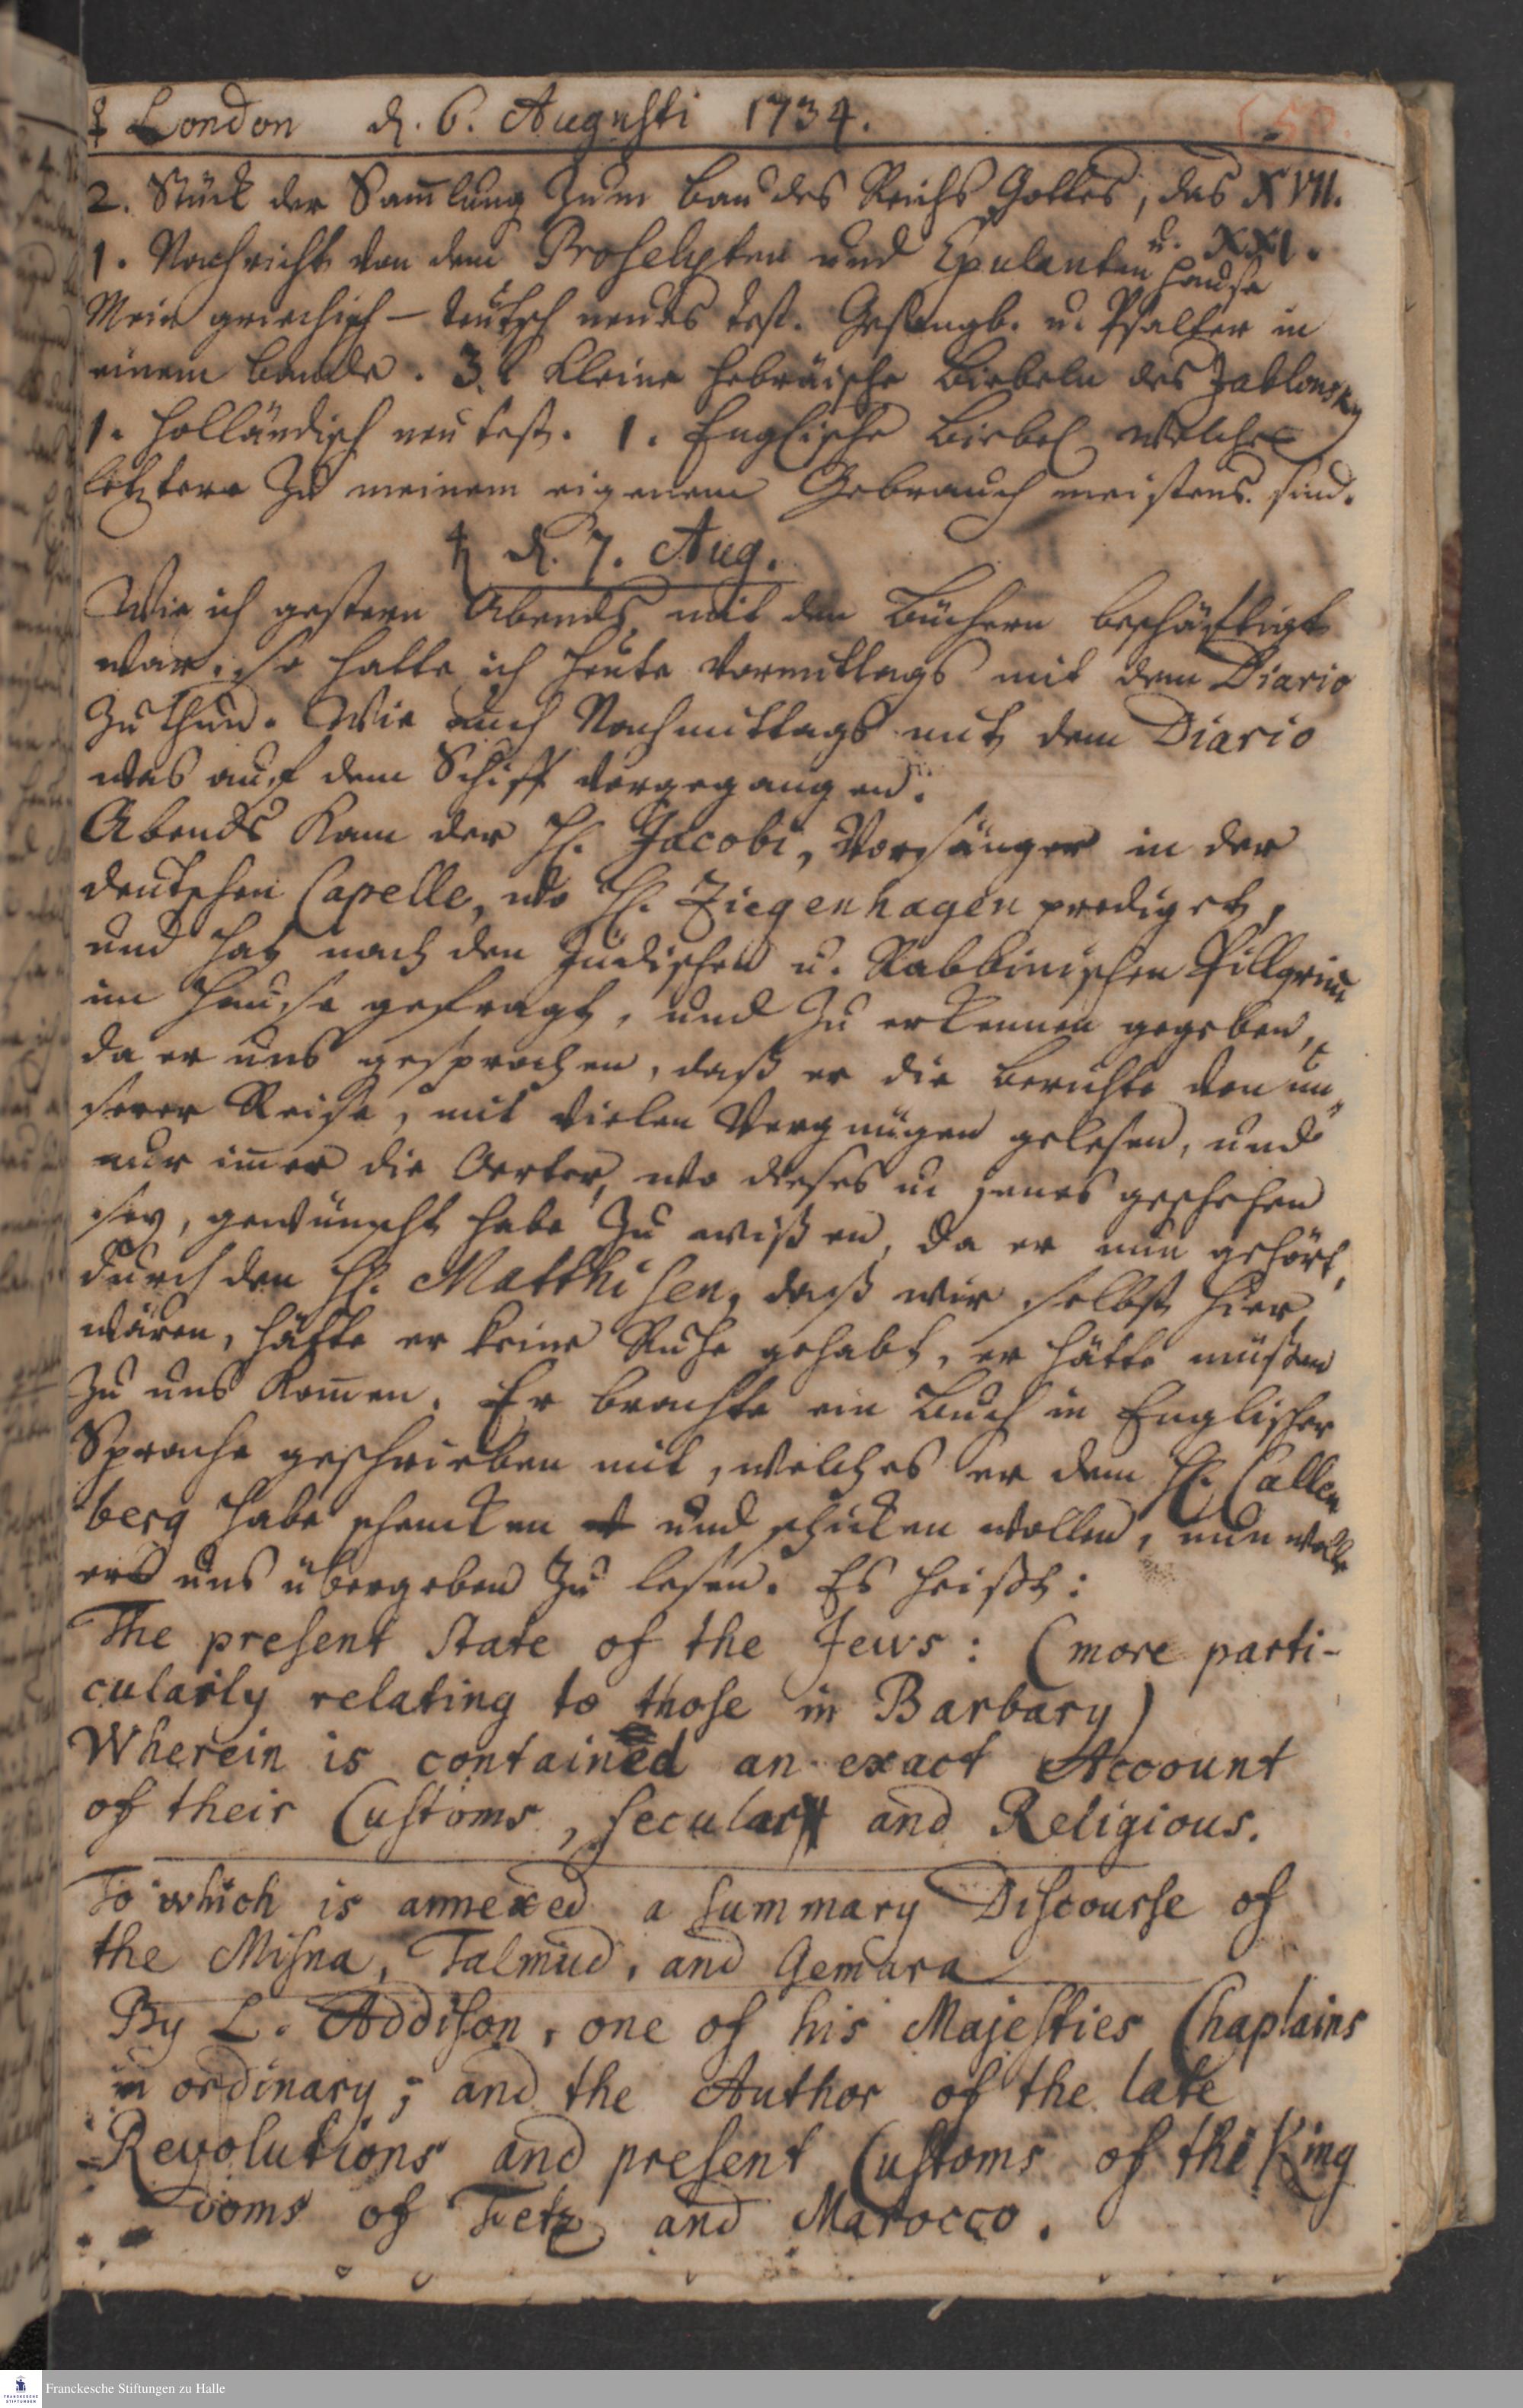 ♀ London d. 6. Augusti 1734. (50.
2. Stück der Sam̄lung Zum bau des Reichs Gottes, das XVII.
u. XXI.
1. Nachricht von dem Proselyten und Expulanten hause
Mein griechisch-teutsch neues test. Gesangb. u. Psalter in
einem bande. 3. kleine hebräische biebeln des Jablonsky
1. holländisch neu test. 1. Englische biebel welche
letztere Zu meinem eigenem Gebrauch meistens sind.
♄ d. 7. Aug.
Wie ich gestern Abends mit den büchern beschäftigt
war, so hatte ich heute vormittags mit dem Diario
Zu thun. Wie auch Nachmittags mit dem Diario
was auf dem Schiff vorgegangen.
Abends kam der H. Jacobi, Vorsänger in der
deutschen Capelle, wo H. Ziegenhagen prediget,
und hat nach den Jüdischen u. Rabbinischen Pillgrim
im Hause gefragt, und Zu erkennen gegeben,
da er uns gesprochen, daß er die berichte von un„
serer Reise, mit vielen Vergnügen gelesen, und
nur im̄er die Oerter, wo dieses u jenes geschehen
sey, gewünscht habe Zu wißen, da er nun gehört,
durch den H. Matthisen, daß wir selbst hier
wären, hätte er keine Ruhe gehabt, er hätte müßen
Zu uns kom̄en. Er brachte ein buch in Englischer
Sprache geschrieben mit, welches er dem H. Callen
berg habe schencken und schicken wollen, nun wolle
ers uns übergeben Zu lesen. Es heißt:
The present State of the Jews: (more parti-
cularly relating to those in Barbary)
Wherein is contained an exact Account
of their Customs, secular and Religious.
To which is annexed a summary Discourse of
the Misna, Talmud, and Gemara
By L. Addison, one of his Majesties Chaplains
in ordinary; and the Author of the late
Revolutions and present Customs of the King
doms of Fetz and Marocco.
Franckesche Stiftungen zu Halle